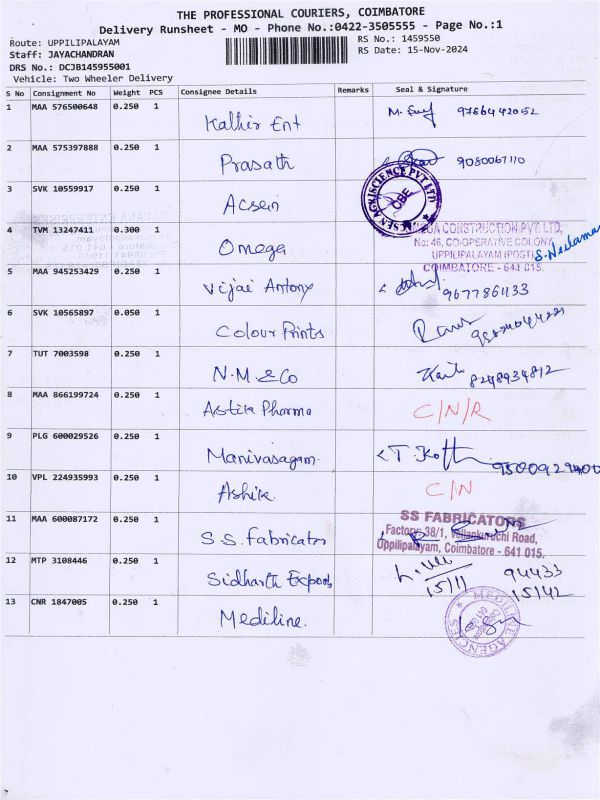 THE PROFESSIONAL COURIERS, COIMBATORE
Delivery Runsheet - MO - Phone No.:0422-3505555 - Page No.:1
Route: UPPILIPALAYAM RS No.: 1459550
Staff: JAYACHANDRAN RS Date: 15-Nov-2024
DRS No.: DCJB145955001
Vehicle: Two Wheeler Delivery
S No Consignment No Weight PCS Consignee Details Remarks Seal & Signature
1 MAA 576500648 0.250 1 Kalhir Ent
2 MAA 575397888 0.250 1 Prasath
3 SVK 10559917 0.250 1 Acsein
ACSEN AGRISCIENCE PVT LTD
CBE
4 TVM 13247411 0.300 1 Omega
CONSTRUCTION PVT. LTD,
No: 46, CO-OPERATIVE COLONY
UPPILIPALAYAM (POST)
COIMBATORE - 641 015.
5 MAA 945253429 0.250 1 Vijai Antony
6 SVK 10565897 0.050 1 Colour Prints
7 TUT 7003598 0.250 1 N.M. & Co 8248934812
8 MAA 866199724 0.250 1 Astik Pharma C/N/R
9 PLG 600029526 0.250 1 Manivasagam.
10 VPL 224935993 0.250 1 Ashik C/N
11 MAA 600087172 0.250 1 S.S. fabricator
SS FABRICATORS
Factory: 38/1, Vellankuruchi Road,
Uppilipalayam, Coimbatore - 641 015.
12 MTP 3108446 0.250 1 Sidharth Exports 15/11 94433
15142
13 CNR 1847005 0.250 1 Mediline.
MEDILINE AGENCIES